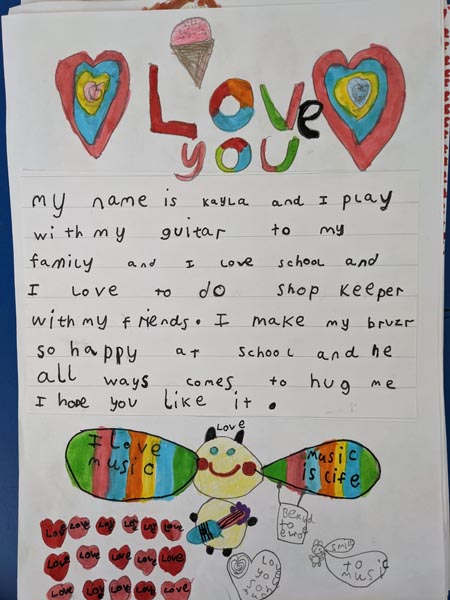 Love
you
my name is kayla and I play
with my guitar to my
family and I love school and
I love to do shop keeper
with my friends. I make my bruzr
so happy at school and he
all ways comes to hug me
I hope you like it.
Love
I Love music
music is life
Love Love Love Love Love
Love Love Love Love Love
Love Love Love Love Love
Love you
smile
to music